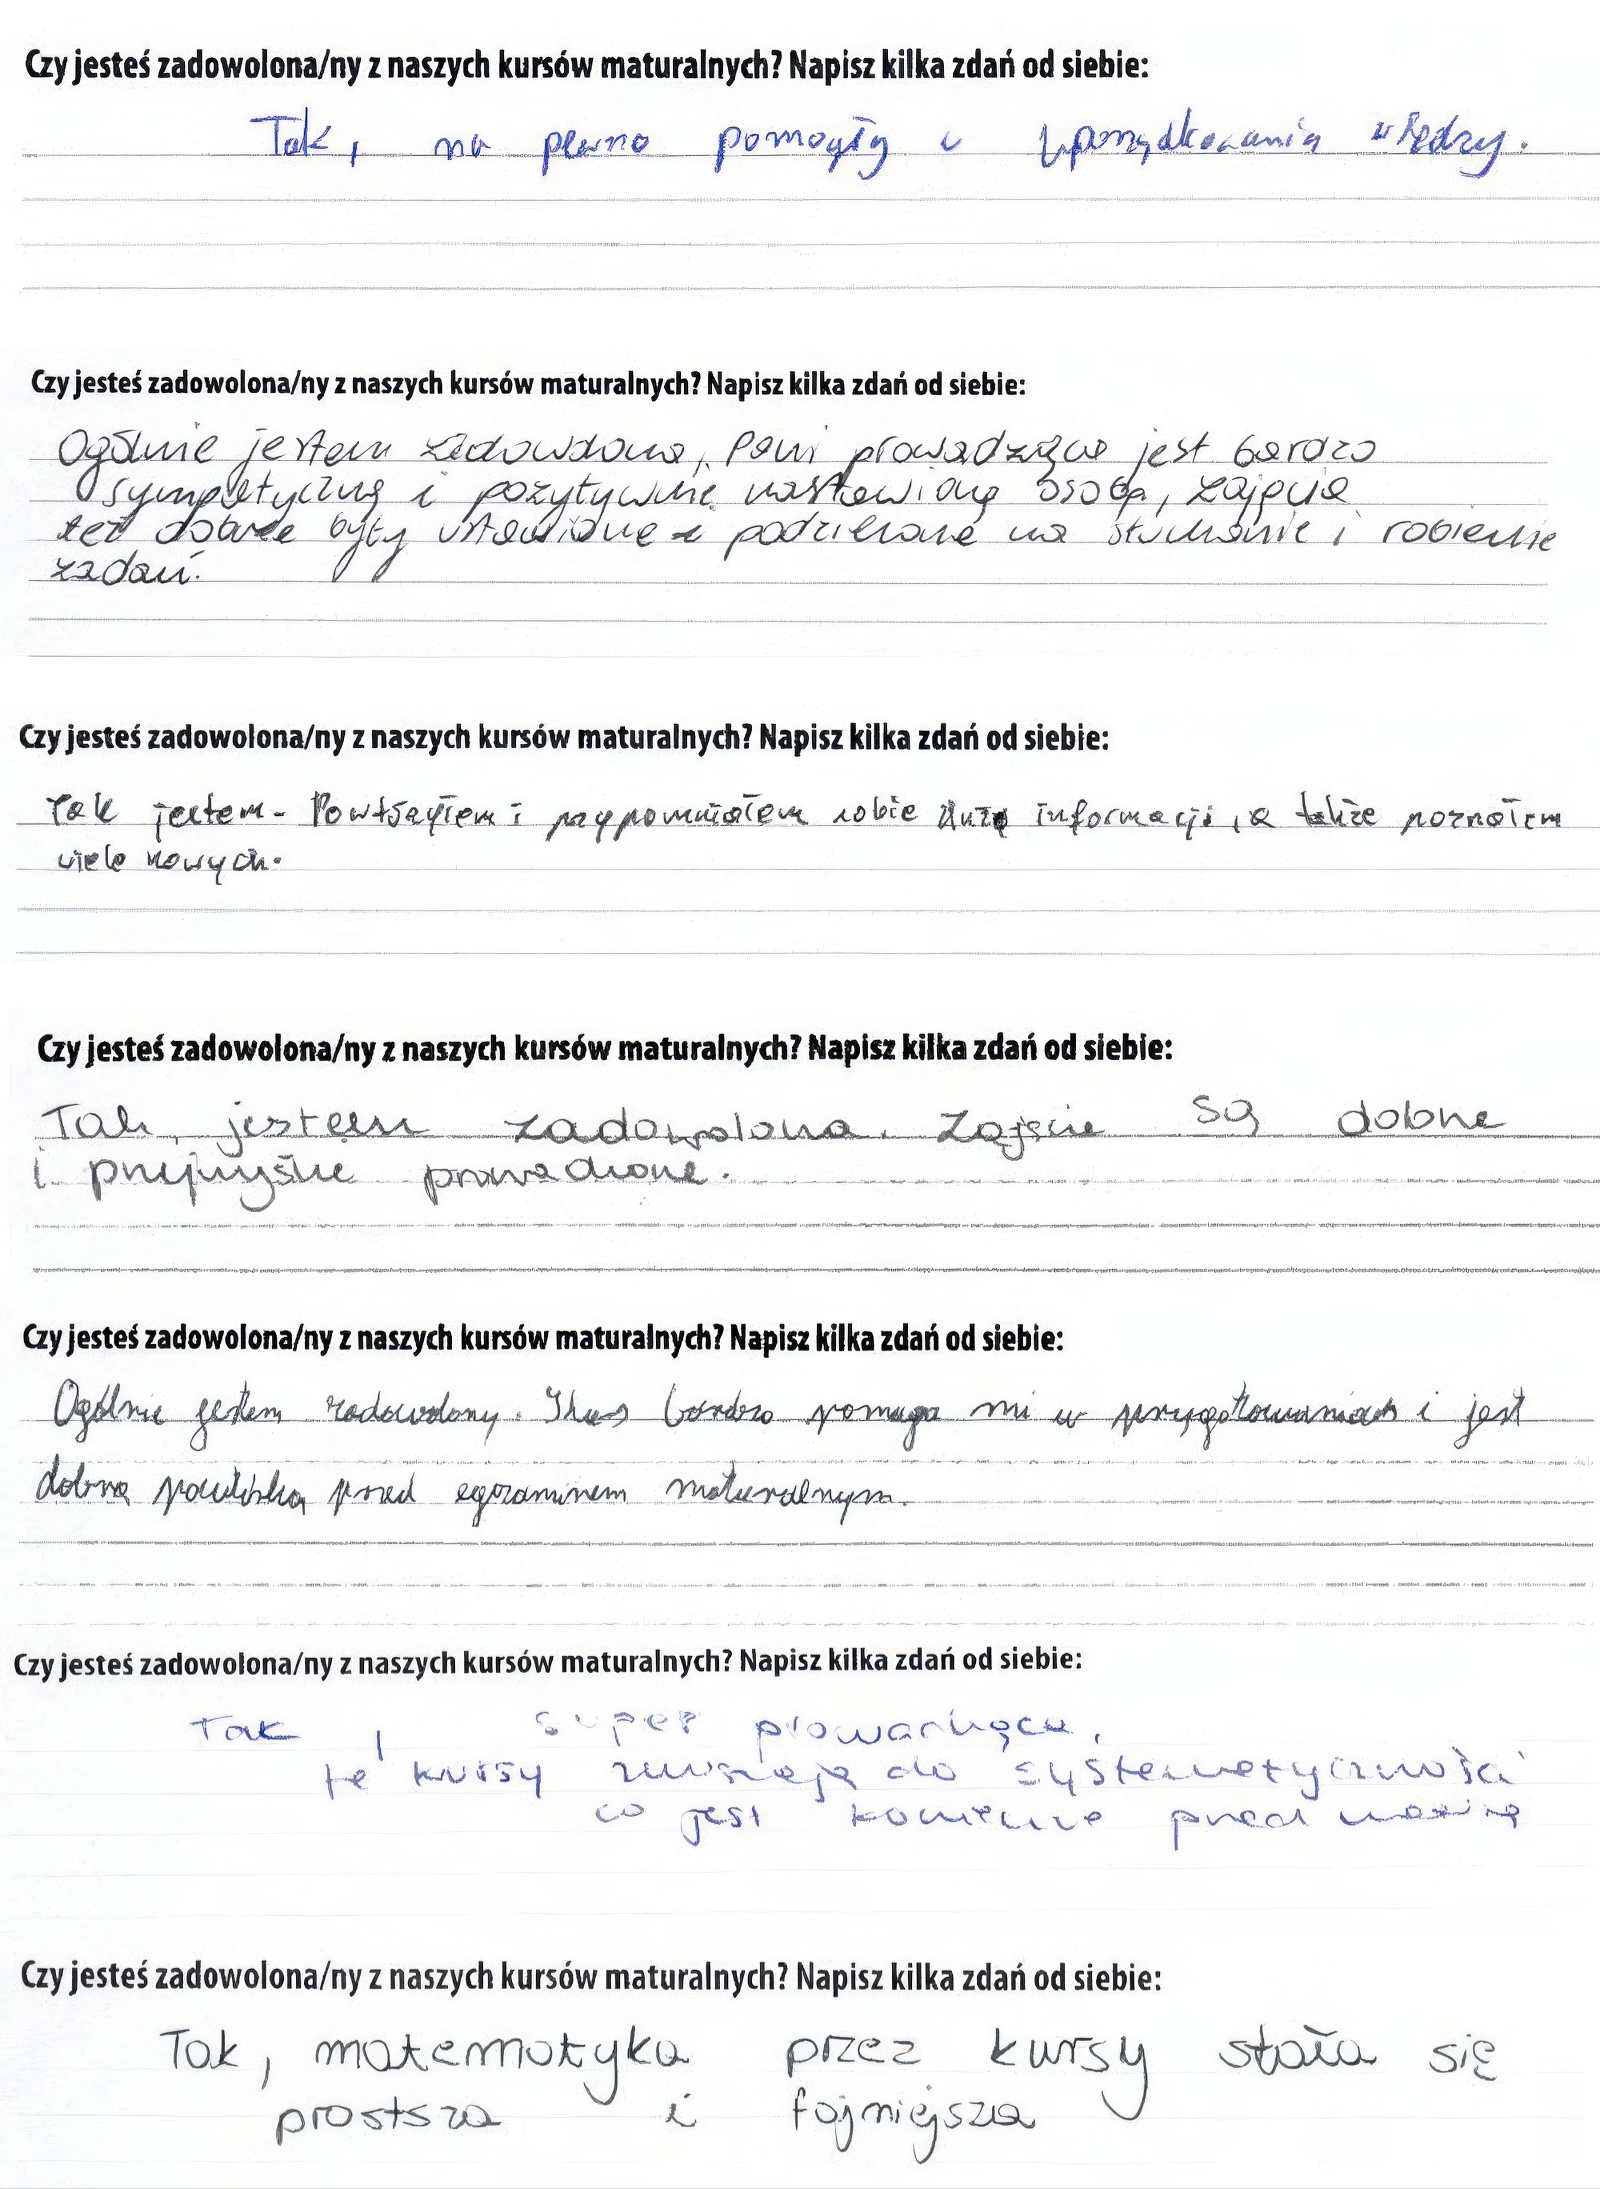 Czy jesteś zadowolona/ny z naszych kursów maturalnych? Napisz kilka zdań od siebie:
Tak, na pewno pomogły w uporządkowaniu wiedzy.
Czy jesteś zadowolona/ny z naszych kursów maturalnych? Napisz kilka zdań od siebie:
Ogólnie jestem zadowolona, Pani prowadząca jest bardzo
sympatyczną i pozytywnie nastawioną osobą, zajęcia
też dobrze były ustawione podzielone na słuchanie i robienie
zadań.
Czy jesteś zadowolona/ny z naszych kursów maturalnych? Napisz kilka zdań od siebie:
Tak jestem. Powtórzyłem i przypomniałem sobie dużo informacji, a także poznałem
wiele nowych.
Czy jesteś zadowolona/ny z naszych kursów maturalnych? Napisz kilka zdań od siebie:
Tak, jestem zadowolona. Zajęcia są dobrze
i przejrzyście prowadzone.
Czy jesteś zadowolona/ny z naszych kursów maturalnych? Napisz kilka zdań od siebie:
Ogólnie jestem zadowolony. Kurs bardzo pomaga mi w przygotowaniach i jest
dobrą powtórką przed egzaminem maturalnym.
Czy jesteś zadowolona/ny z naszych kursów maturalnych? Napisz kilka zdań od siebie:
Tak, super prowadząca,
te kursy zmuszają do systematyczności
co jest konieczne przed maturą
Czy jesteś zadowolona/ny z naszych kursów maturalnych? Napisz kilka zdań od siebie:
Tak, matematyka przez kursy stała się
prostsza i fajniejsza